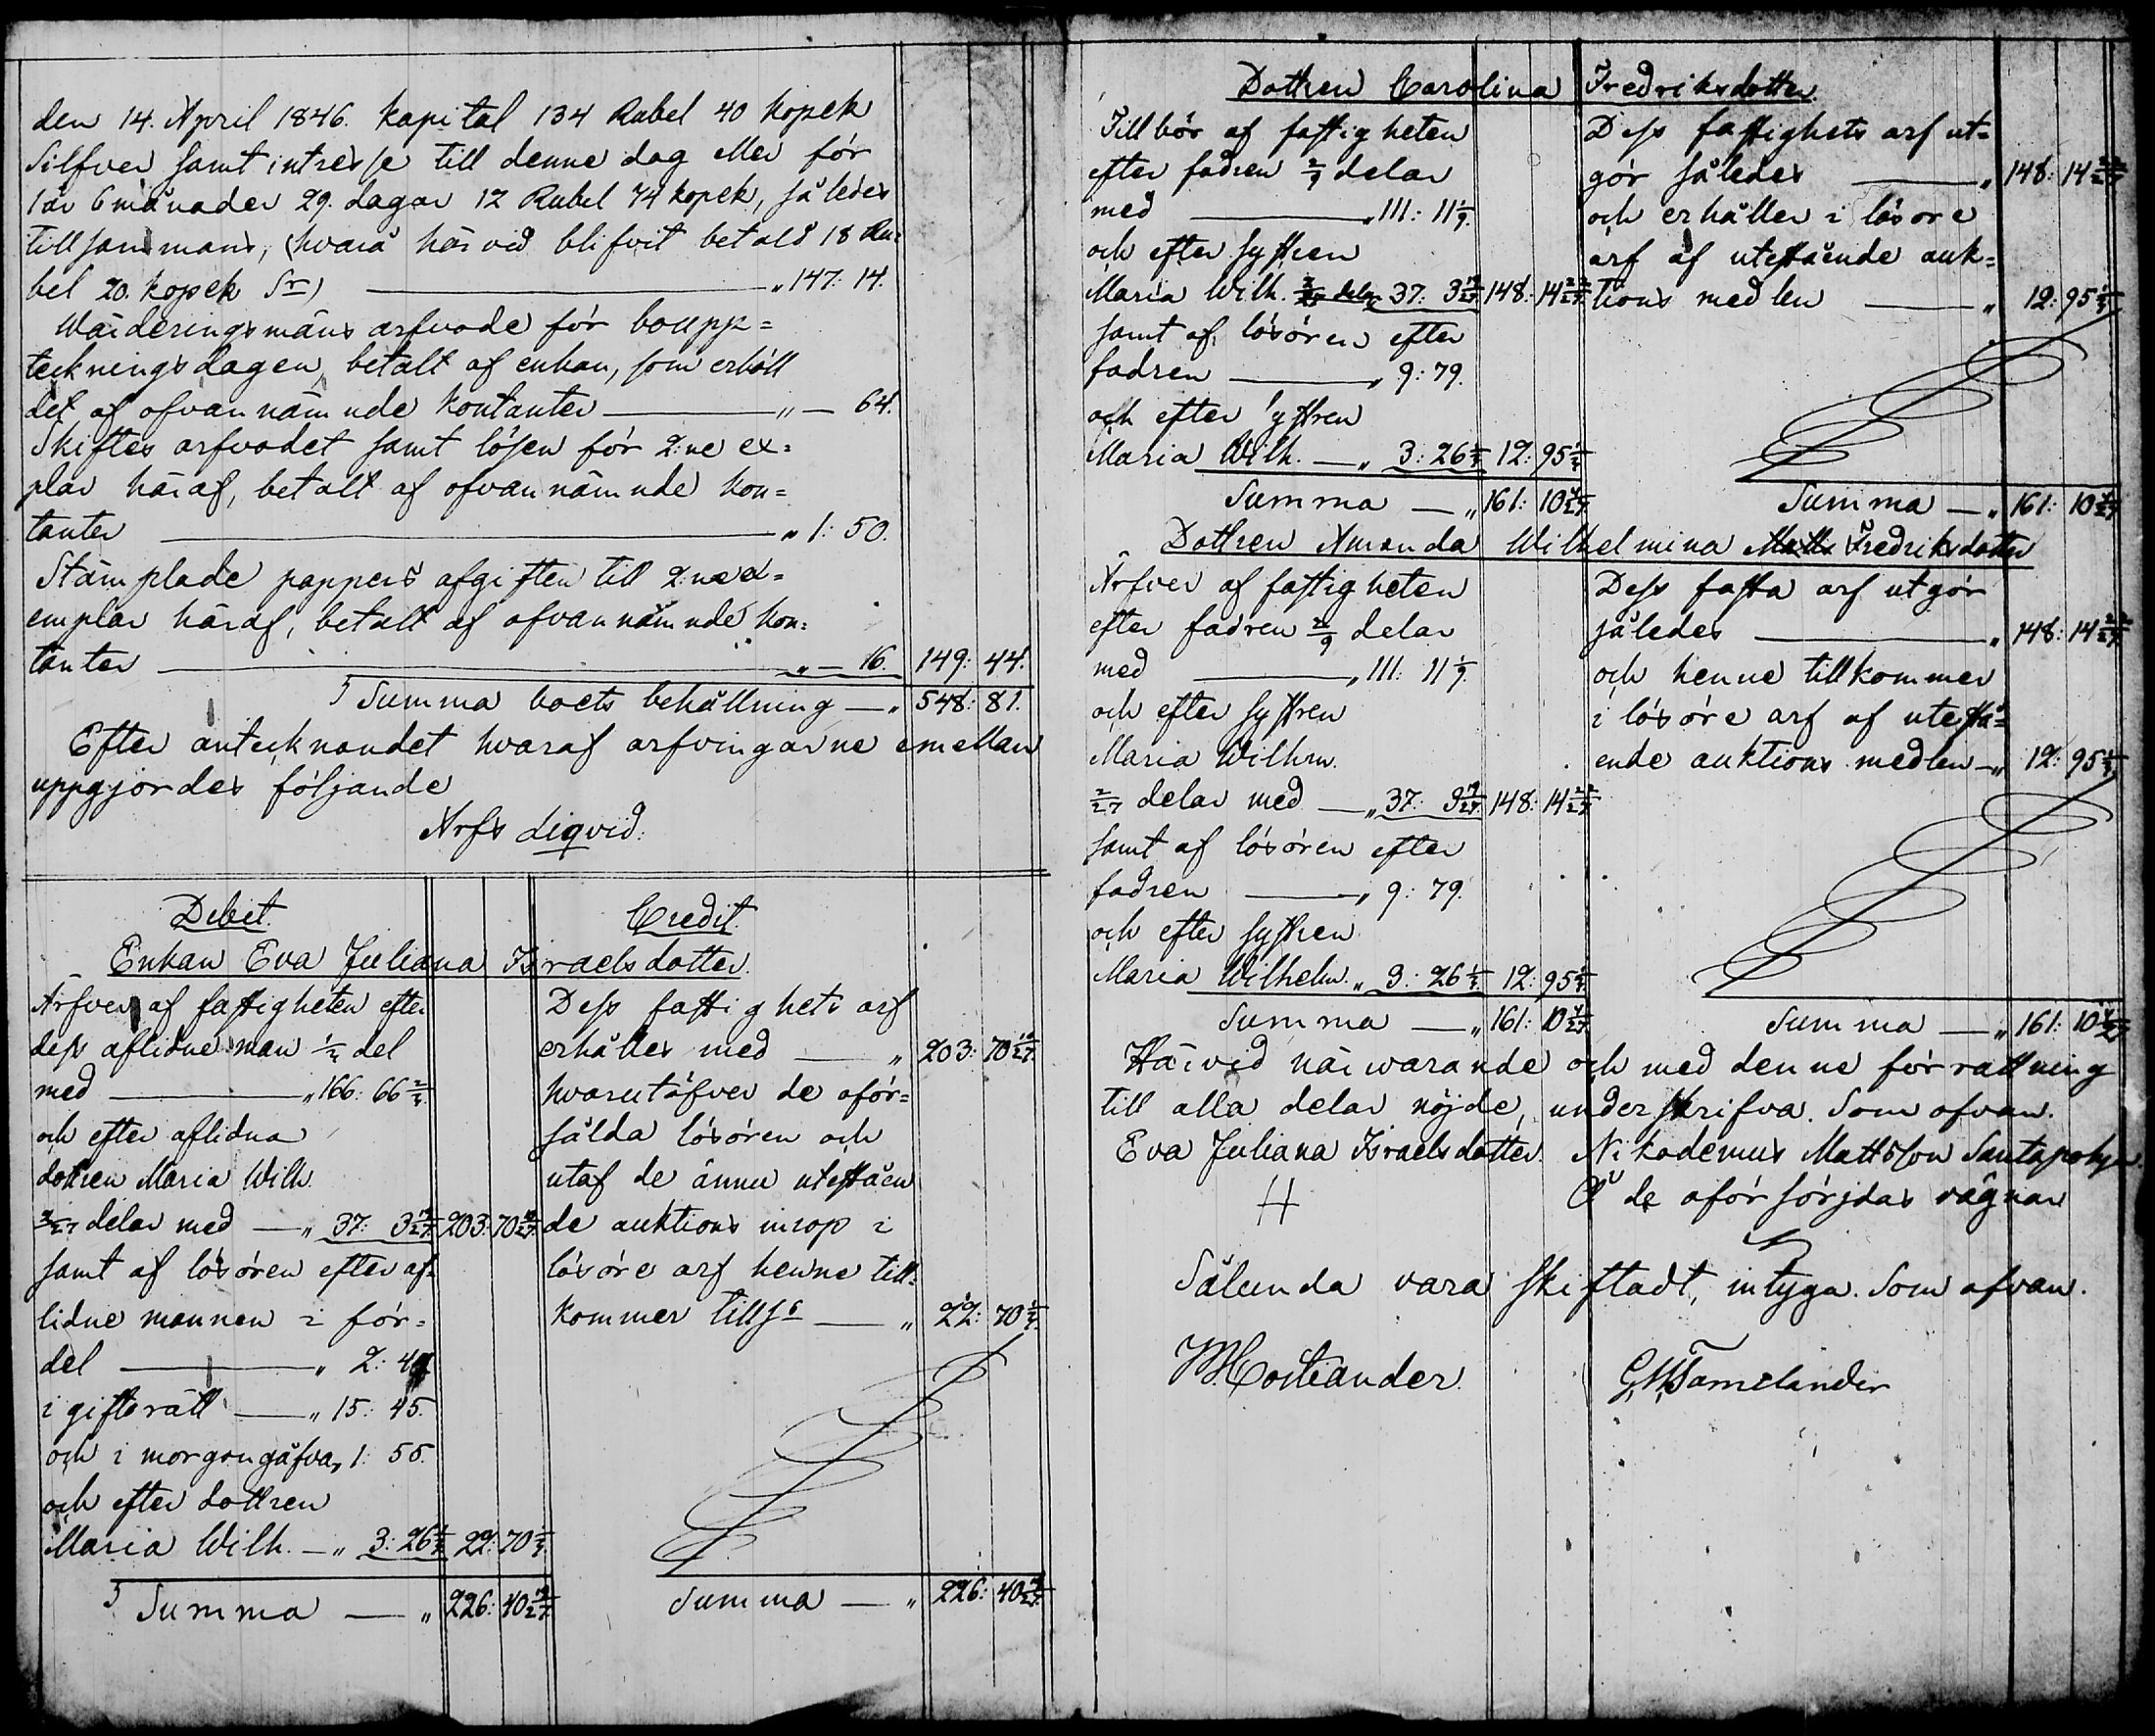 den 14. April 1846. kapital 134 Rubel 40 kopek
Silfver samt intresse till denne dag Mer för
1 år 6 månader 29. dagar 12 Rubel 74 kopek, således
tillsammans, (hvarå härvid blifvit betald 18 Ru=
bel 20. kopek Sr) — „ 147: 14.
Wärderingsmäns arfvode för boupp=
teckningsdagen, betalt af enkan, som erhöll
det af ofvannämnde kontanter — „ — 64.
Skiftes arfvodet samt lösen för 2:ne ex=
plar häraf, betalt af ofvannämnde kon=
tanter — „ 1: 50.
Stämplade pappers afgiften till 2:ne ex=
emplar häraf, betalt af ofvannämnde kon=
tanter — „ — 16. 149: 44.
Summa boets behållning — „ 548: 81.
Efter antecknandet hvaraf arfvingarne emellan
uppgjordes följande
Arfs Liqvid.
Debet. Credit.
Enkan Eva Juliana Israelsdotter.
Ärfver af fastigheten efter
dess aflidne man 1/2 del
med — „ 166: 66 2/3.
och efter aflidna
dottren Maria Wilh.
2/27 delar med — „ 37: 3 19/27. 203: 70 10/27.
samt af lösören efter af=
lidne mannen i för=
del — „ 2: 44
i giftorätt — „ 15: 45.
och i morgongåfva „ 1: 55.
och efter dottren
Maria Wilh. — „ 3: 26 1/3. 22: 70 1/3.
Summa — „ 226: 40 19/27.
Dess fastighets arf
erhålles med — „ 203: 70 10/27.
hvarutöfver de oför=
sålda lösören och
utaf de ännu utestäen
de auktions inrop i
lösöre arf henne till=
kommer tills — „ 22: 70 1/3.
Summa — „ 226: 40 19/27.
Dottren Carolina Fredriksdotter.
Tillhör af fastigheten
efter fadren 2/9 delar
med — „ 111: 11 1/9.
och efter systren
Maria Wilh. 2/27 delar 37: 3 19/27. 148: 14 22/27.
samt af lösören efter
fadren — „ 9: 79.
och efter systren
Maria Wilh. — „ 3: 26 1/3. 12: 95 1/3.
Summa — „ 161: 10 4/27.
Dess fastighets arf ut=
gör således — „ 148: 14 22/27.
och erhåller i lösöre
arf af utestäende auk=
tions medlen — „ 12: 95 1/3.
Summa — „ 161: 10 4/27.
Dottren Amanda Wilhelmina Matts Fredriksdotter
Ärfver af fastigheten
efter fadren 2/9 delar
med — „ 111: 11 1/9.
och efter systren
Maria Wilhm.
2/27 delar med — „ 37: 3 19/27. 148: 14 22/27.
samt af lösören efter
fadren — „ 9: 79.
och efter systren
Maria Wilhelm. „ 3: 26 1/3. 12: 95 1/3.
Summa — „ 161: 10 4/27.
Dess fasta arf utgör
således — „ 148: 14 22/27.
och henne tillkommer
i lösöre arf af utestå=
ende auktions medlen — „ 12: 95 1/3.
Summa — „ 161: 10 4/27.
Härvid närwarande och med denne förrättning
till alla delar nöjde, underskrifva. Som ofvan.
Eva Juliana Israelsdotter. Nikodemus Mattsson Santapohja
Å de oförsörjdas vägnar
Sålunda vara skiftadt, intyga. Som ofvan.